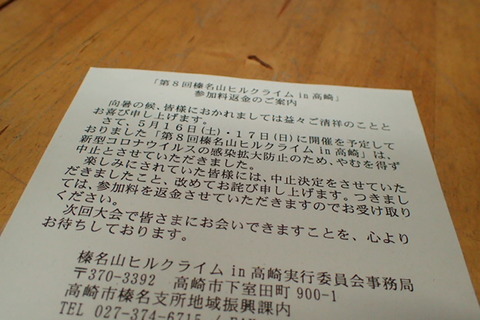 「第8回榛名山ヒルクライム in 高崎」
参加料返金のご案内
向暑の候、皆様におかれましては益々ご清祥のことと
お喜び申し上げます。
さて、5月16日(土)・17日(日)に開催を予定して
おりました「第8回榛名山ヒルクライム in 高崎」は、
新型コロナウイルスの感染拡大防止のため、やむを得ず
中止とさせていただきました。
楽しみにされていた皆様には、中止決定をさせていた
だきましたこと、改めてお詫び申し上げます。つきまし
ては、参加料を返金させていただきますのでお受け取り
ください。
次回大会で皆さまにお会いできますことを、心より
お待ちしております。
榛名山ヒルクライム in 高崎実行委員会事務局
〒370-3392 高崎市下室田町900-1
高崎市榛名支所地域振興課内
TEL 027-374-6715 /